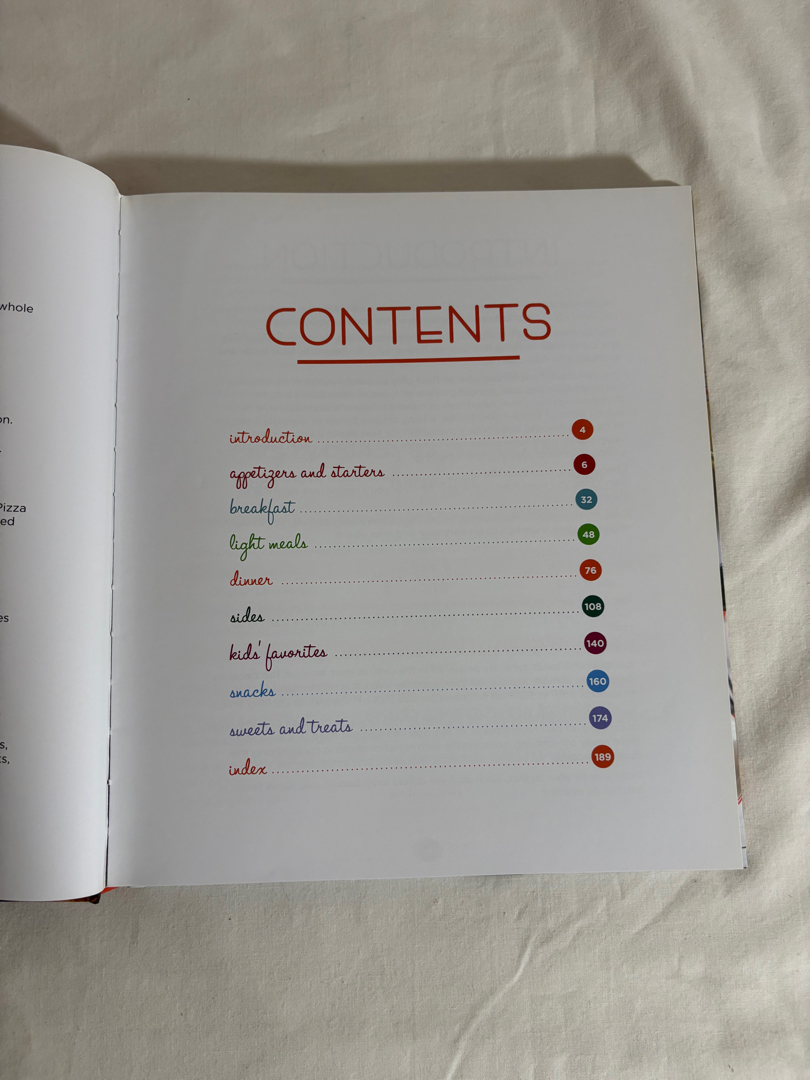 whole
on.
Pizza
ed
es
s,
s,
CONTENTS
introduction 4
appetizers and starters 6
breakfast 32
light meals 48
dinner 76
sides 108
kids' favorites 140
snacks 160
sweets and treats 174
index 189